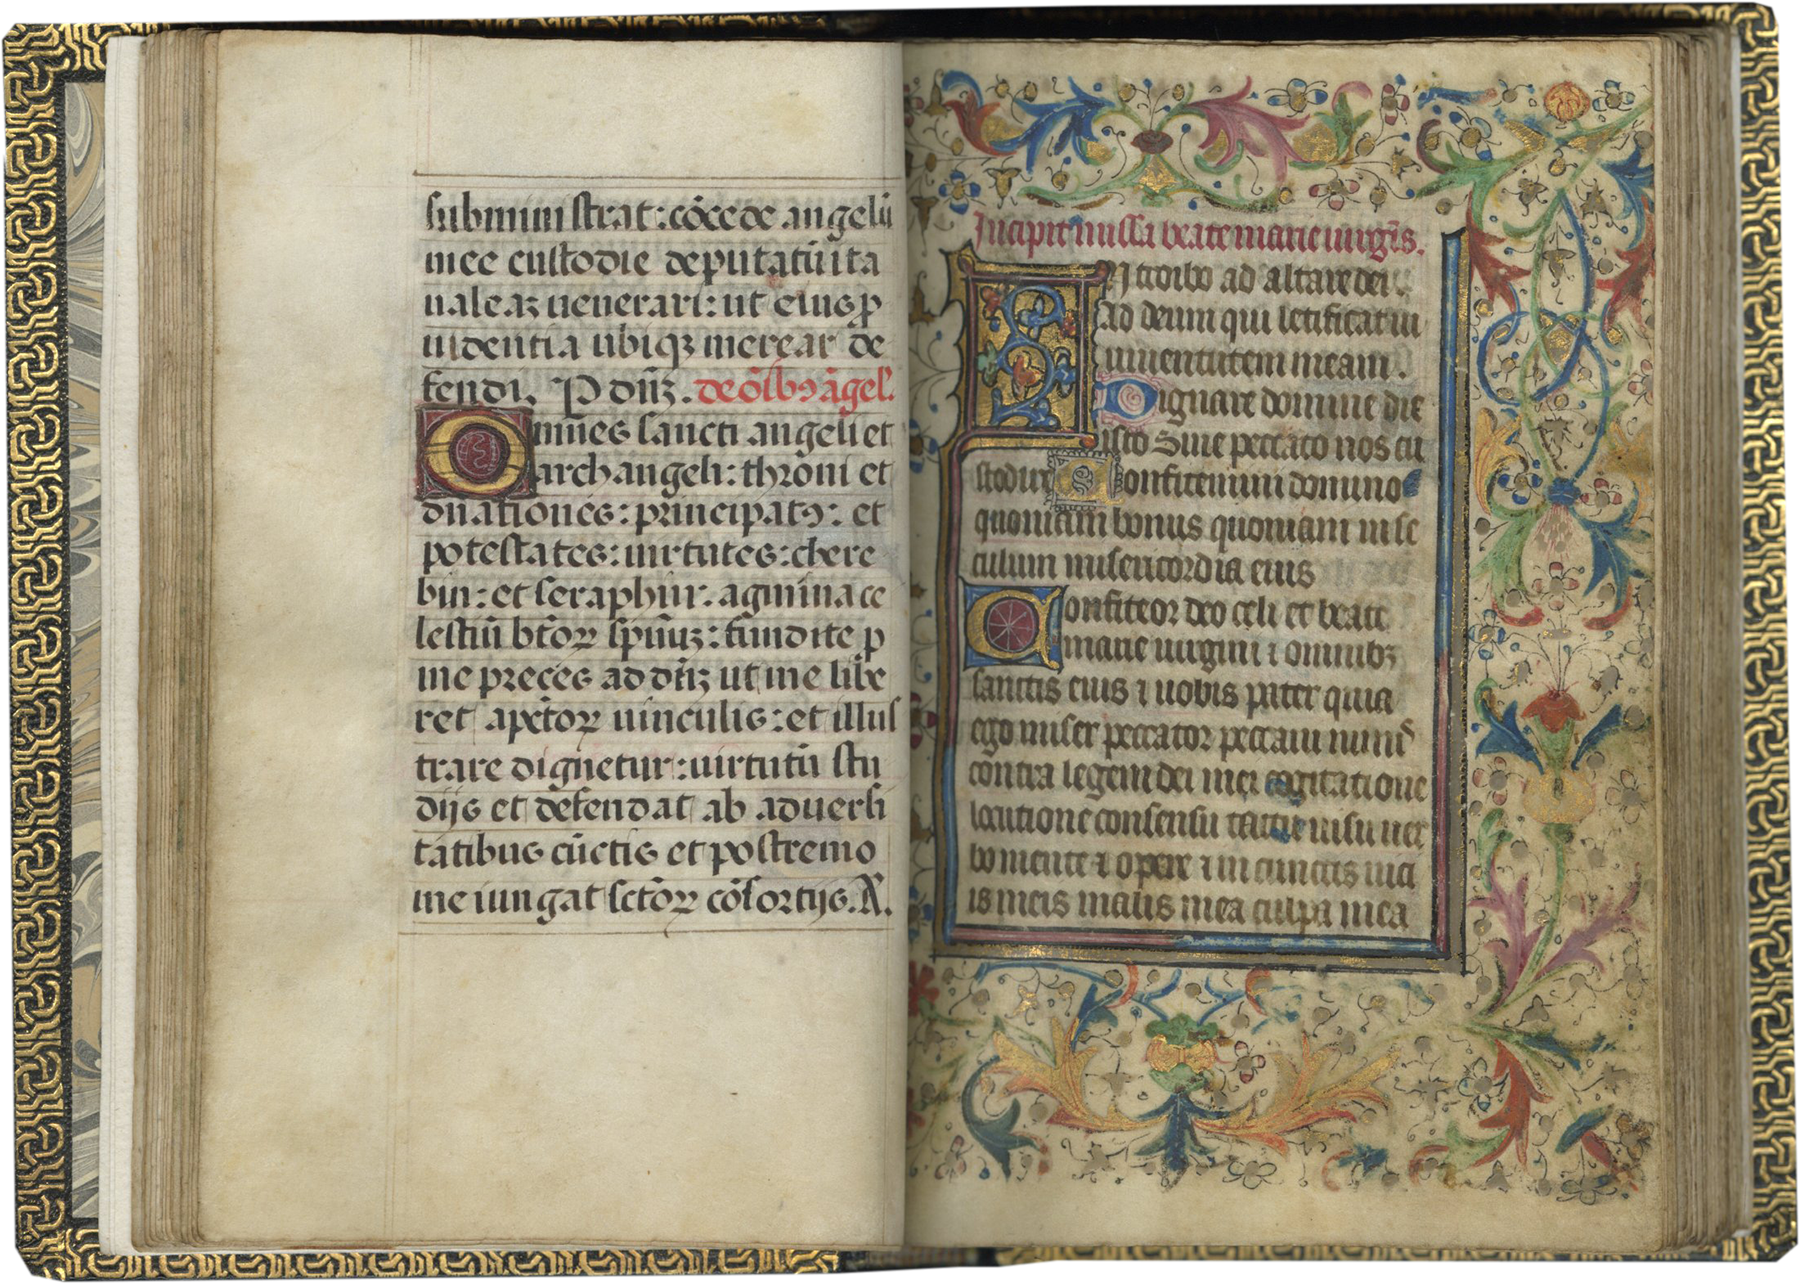 subministrat: cōcede angelū
mee custodie deputatū ita
ualeaꝫ uenerari: ut eius ꝓ
uidentia ubiqꝫ merear de
fendi. P dn̄ꝫ. de oīb9 āgel'.
Omnes sancti angeli et
archangeli: throni et
dn̄ationes: principat9: et
potestates: uirtutes: cheru
bin: et seraphin. agmina ce
lestiū bt̄oꝝ spūuꝫ: fundite ꝓ
me preces ad dn̄ꝫ ut me libe
ret a pct̄oꝝ uinculis: et illus
trare dignetur: uirtutū stu
dijs et defendat ab aduersi
tatibus cūctis et postremo
me iungat sct̄oꝝ cōsortijs. A̅.
Incipit missa beate marie uirgīs.
INtroibo ad altare dei
Ad deum qui letificat iu
uuentutem meam.
Dignare domine die
isto Sine peccato nos cu
stodire Confitemini domino
quoniam bonus quoniam in se
culum misericordia eius
Confiteor deo celi et beate
marie uirgini ⁊ omnibꝫ
sanctis eius ⁊ uobis pater quia
ego miser peccator peccaui nimis
contra legem dei mei cogitatione
locutione consensu tactu uisu uer
bo mente ⁊ opere ⁊ in cunctis uici
is meis malis mea culpa mea